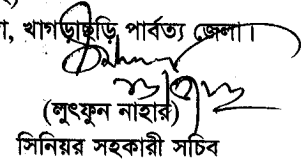 , খাগড়াছড়ি, পার্বত্য জেলা।
(লুৎফুন নাহার)
সিনিয়র সহকারী সচিব